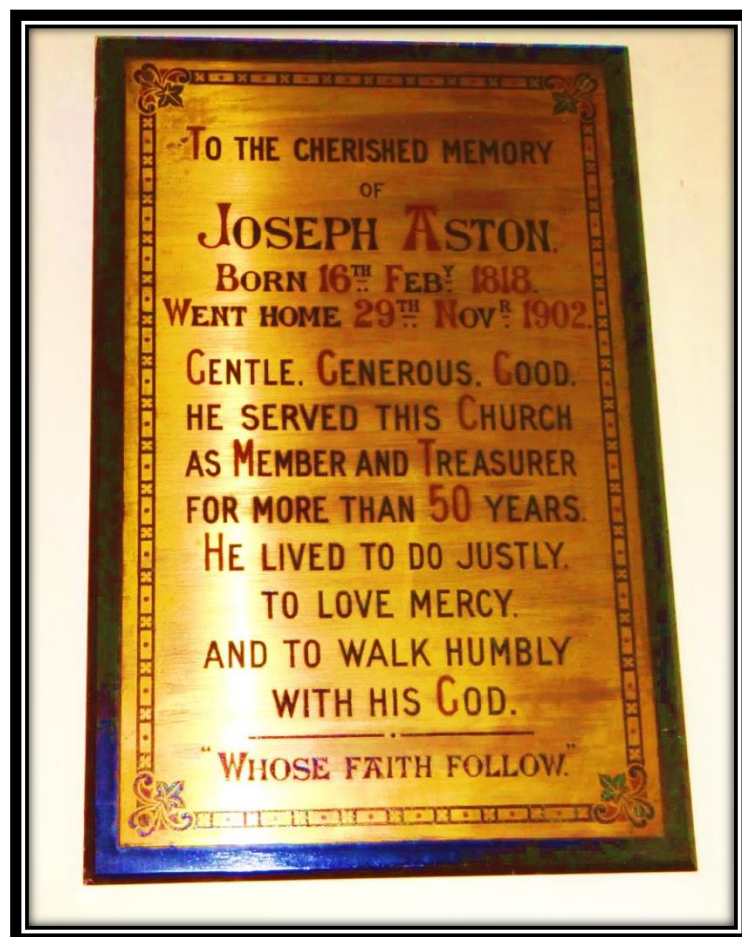 To the cherished memory
of
Joseph Aston.
Born 16TH Feby 1818.
Went home 29TH Novr 1902.
Gentle. Generous. Good.
He served this Church
as Member and Treasurer
for more than 50 years.
He lived to do justly.
to love mercy.
and to walk humbly
with his God.
"Whose faith follow."